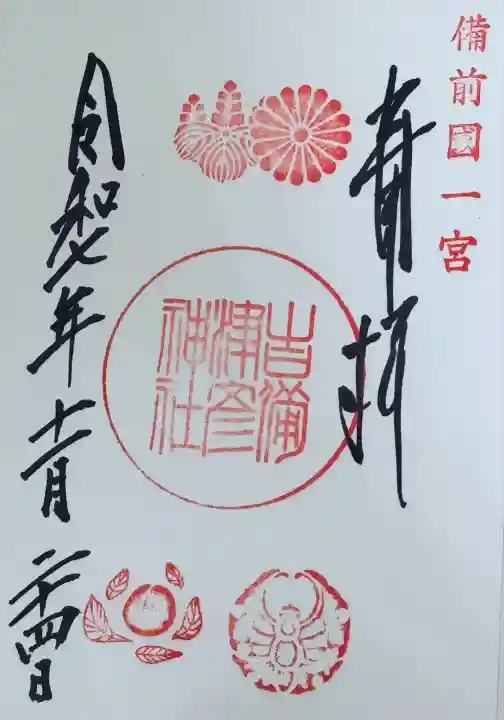 備前國一宮
奉拝
吉備
津彦
神社
令和七年十一月二十四日